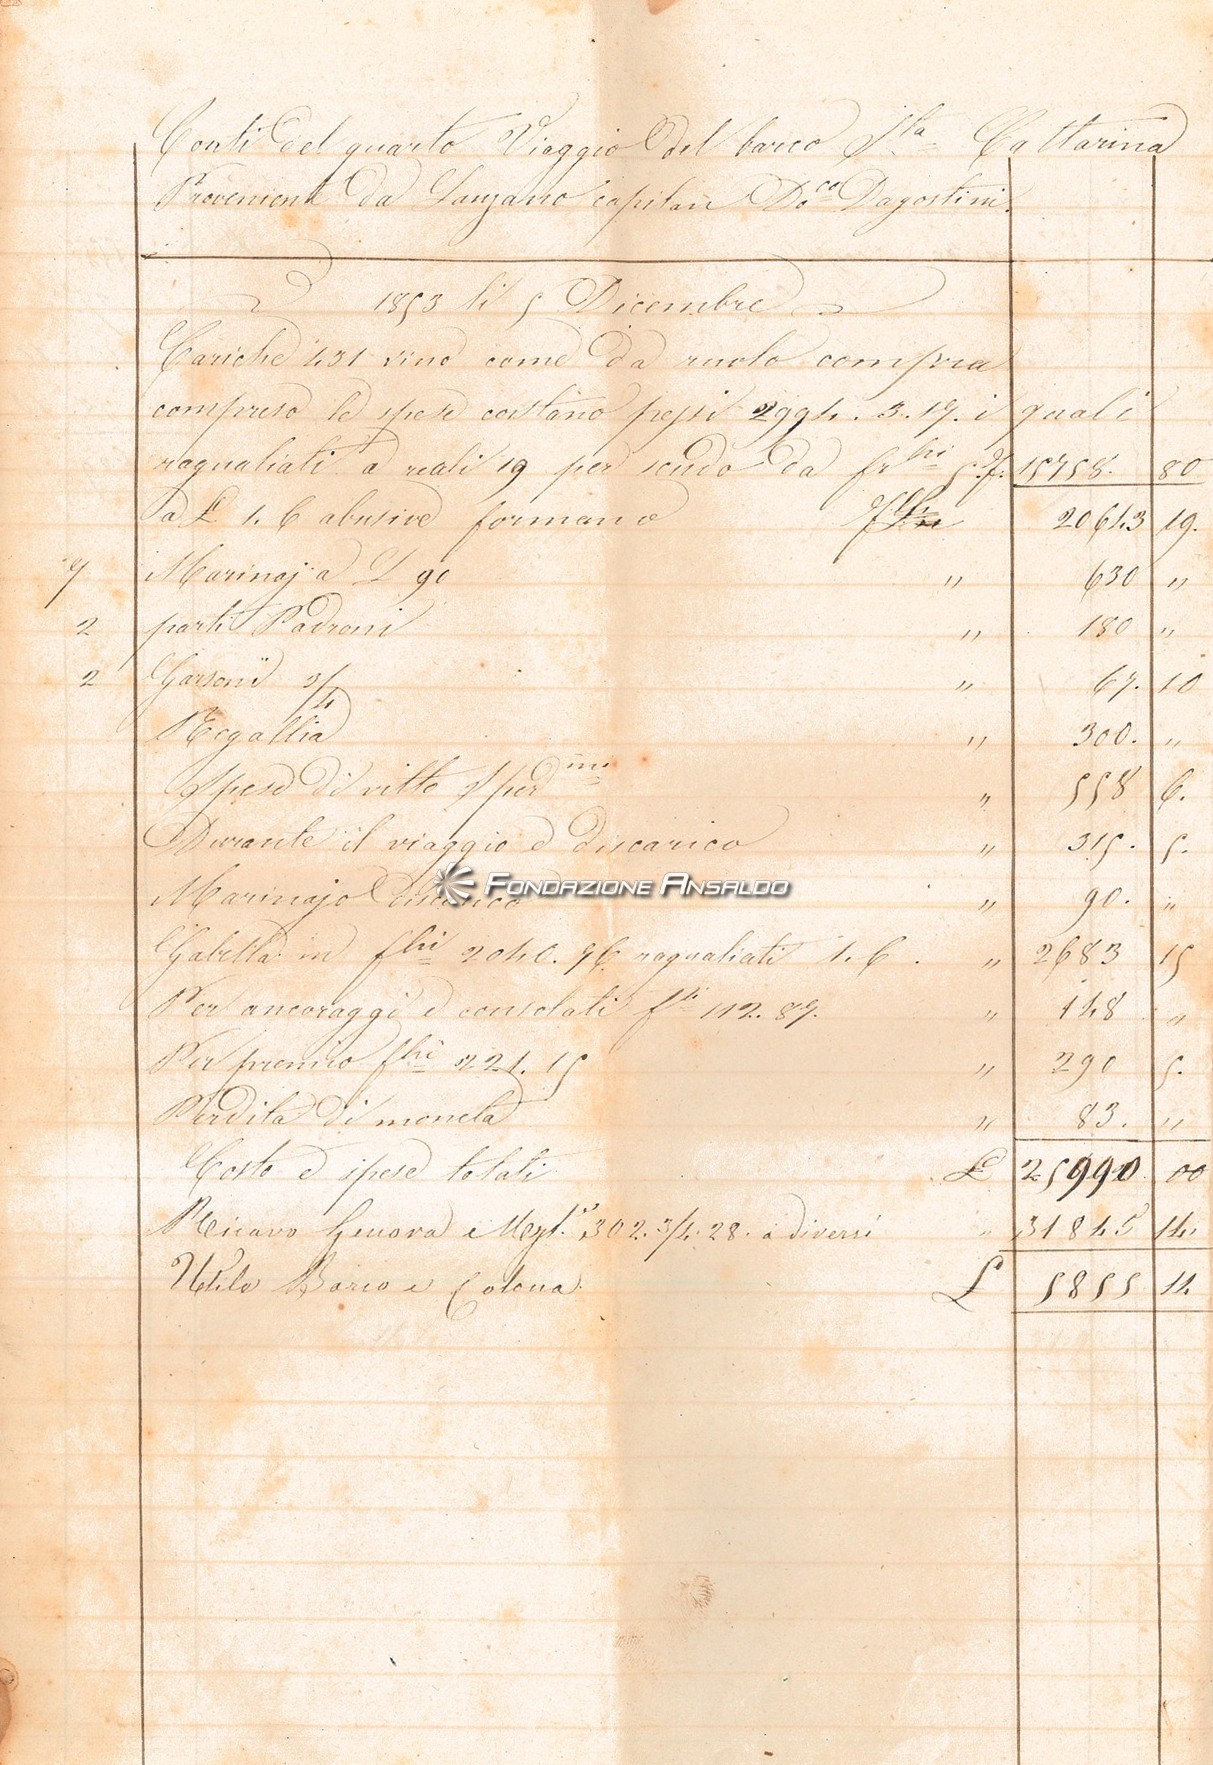 Conti del quarto Viaggio del barco Sta Cattarina
Provenient da Lanzano capitan Do.co Dagostini.
1853 li 5 Dicembre
Cariche 431 vino come da ruolo compra
compreso le spese costano pezzi 2994. 3. 17. i quali
ragualiati a reali 19 per scudo da fr.chi 5. f. 15758. 80
a £ 1. 6 abusive formano 20643 19.
7 Marinaj a L 90 " 630 "
2 parti Padroni " 180 "
2 Garsoni 3/4 " 67. 10
Regallia " 300. "
Spese di vitto " 558 6.
Durante il viaggio e discarico " 315. 5.
Marinajo discarico " 90. "
FONDAZIONE ANSALDO
Gabella in f.chi 2040. 76 ragualiati 1. 6. " 2683 15
Per ancoraggi e consolati f. 112. 87. " 148 "
Per premio f.chi 221. 15 " 290 5.
Perdita di moneta " 83. "
Costo e spese totali £ 25990 00
Ricavo Genova e Mezl. 302. 3/4. 28. a diversi " 31845 14.
Utile Barco e Colona £ 5855 14